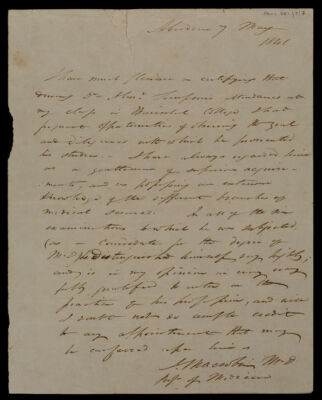 Aberdeen 7 May
1841
I have much pleasure in certifying that
during Dr Alexr Simpson's attendance at
my class in Marischal College I had
frequent opportunities of observing the zeal
and diligence with which he prosecuted
his studies. I have always regarded him
as a gentleman of superior acquire-
-ments, and as possessing an extensive
knowledge of the different branches of
medical science. In all of the
examinations to which he was subjected
(as a candidate for the degree of
M.D) he distinguished himself very highly;
and, is in my opinion in every way
fully qualified to enter on the
practice of his profession, and will
I doubt not do ample credit
to any appointment that may
be conferred upon him.
J. Macrobin M.D.
Prof. of Medicine